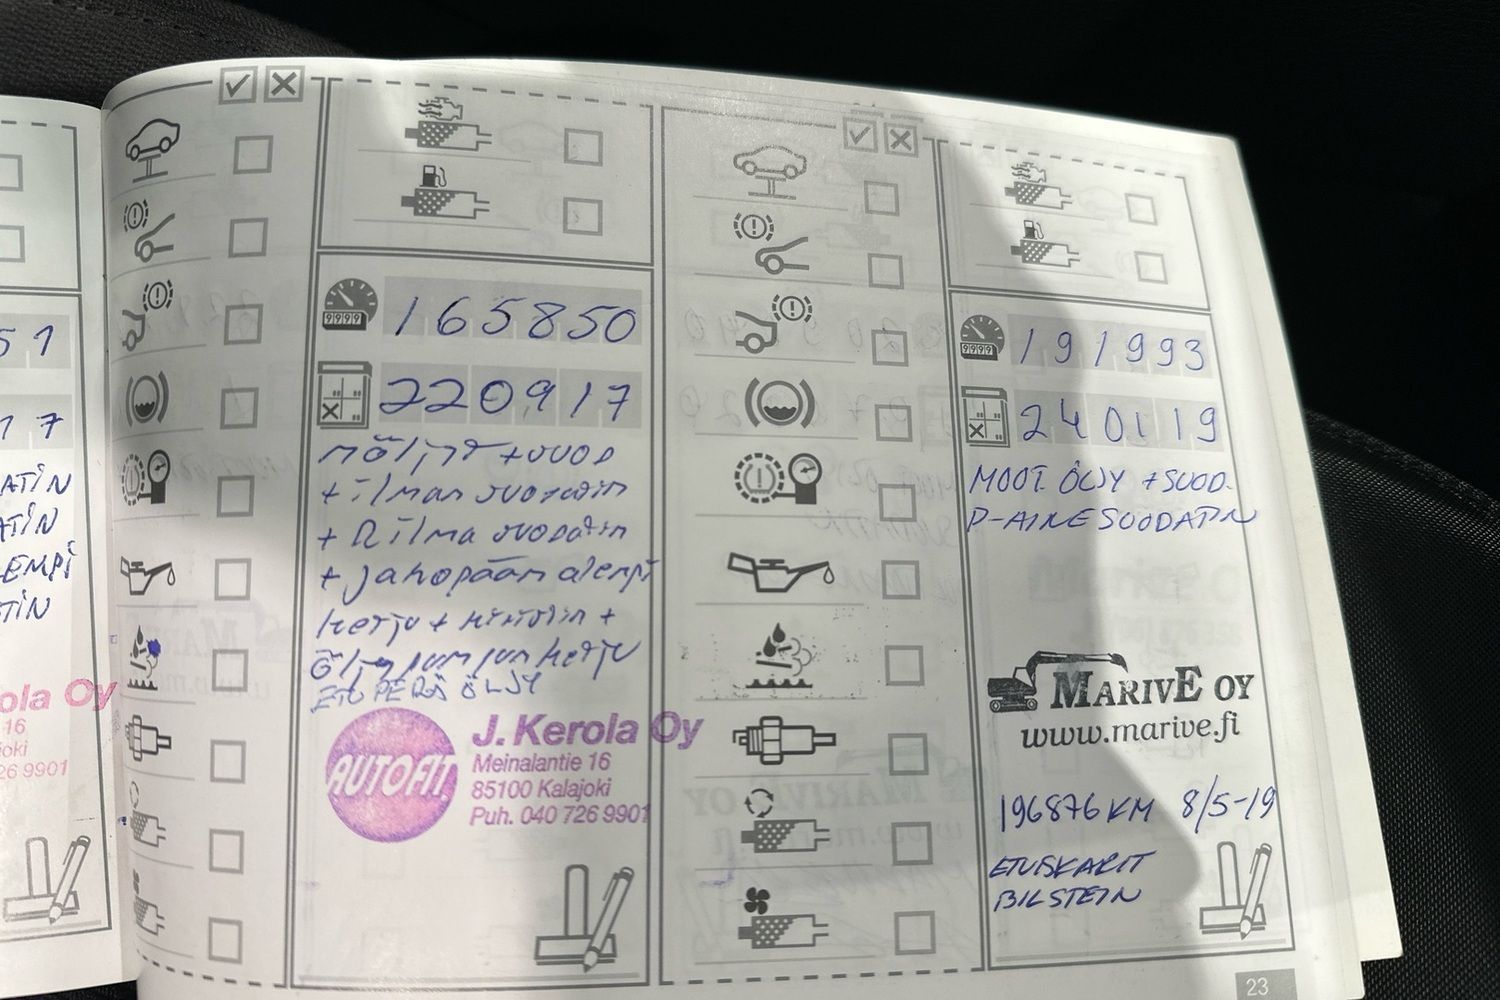 51
17
ATIN
ATIN
EMPI
TIN
ola Oy
16
joki
26 9901
9999
165850
220917
+ ilman suodatin
+ R ilma suodatin
+ jakopään alempi
ketju + kiristin +
öljyn pumpun ketju
ETU PERÄ ÖLJY
AUTOFIT
J. Kerola Oy
Meinalantie 16
85100 Kalajoki
Puh. 040 726 9901
9999
191993
240119
MOOT. ÖLJY + SUOD.
P-AINESUODATIN
MARIVE OY
www.marive.fi
196876 KM 8/5-19
ETUISKARIT
BILSTEIN
23